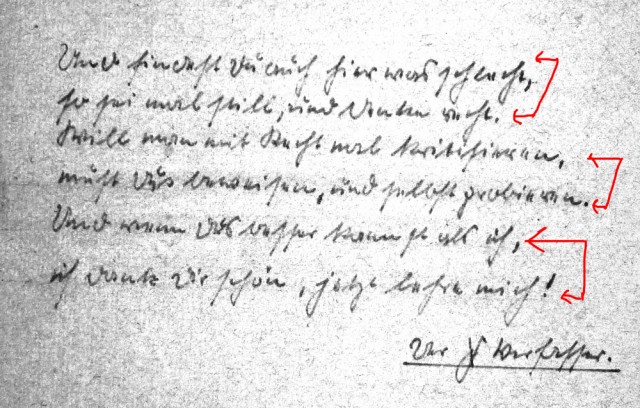 Und findest Du auch hier was schlecht,
so sei mal still, und denke recht.
Will man mit Recht mal kritisieren,
mußt Du's beweisen, und selbst probieren.
Und wenn Du's besser kannst als ich,
ich danke Dir schön, jetzt lehre mich!
Der Verfasser.